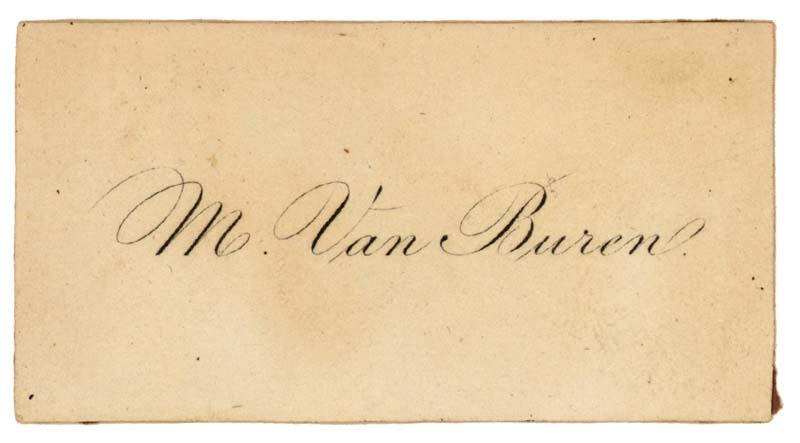 M. Van Buren.